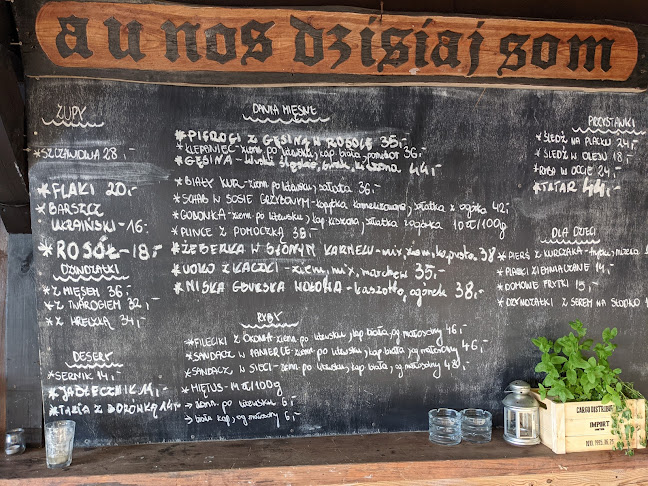 a u nos dzisiaj som
ZUPY
* SZCZAWIOWA 28 ,-
* FLAKI 20,-
* BARSZCZ
UKRAIŃSKI -16,-
* ROSÓŁ -18,-
DZYNDZAŁKI
* Z MIĘSEM 36 ,-
* Z TWAROGIEM 32 ,-
* Z HRECZKĄ 34 ,-
DESERY
* SERNIK 14,-
* JABŁECZNIK 14,-
DANIA MIĘSNE
* PIEROGI Z GĘSINĄ W ROSOLE 35,-
* KLEPANIEC - ziem. po litewsku, kap biała, pomidor 36,-
* GĘSINA - kluski śląskie, burak, kiszona 44,-
* BIAŁY KUR - ziem. po litewsku, sałatka 36,-
* SCHAB W SOSIE GRZYBOWYM - sałatka z ogórka 42,-
* GOLONKA - ziem. po litewsku, kap kiszona, sałatka z ogórka 10 zł/100g
* PLINCE Z POMOCZKĄ 38,-
* ŻEBERKA W SŁONYM KARMELU - mix, ziem, kap. prosta 38
* UDKO Z KACZKI - ziem, mix, marchew 35,-
* MISKA - kaszotto, ogórek 38,-
RYBY
* FILECIKI Z OKONIA - ziem. po litewsku, kap biała, og małosolny 46 ,-
* SANDACZ W PANIERCE - ziem. po litewsku, kap biała, og małosolny 46,-
* SANDACZ W SIECI - ziem. po litewsku, kap biała, og małosolny 48,-
* MIĘTUS - 14 zł/100g
→ ziem. po litewsku 6 ,-
→ biała kap, og małosolny 6 ,-
PRZYSTAWKI
* ŚLEDŹ NA PLACKU 24,-
* ŚLEDŹ W OLEJU 18,-
* RYBA W OCCIE 24,-
* TATAR 44,-
DLA DZIECI
* PIERŚ Z KURCZAKA - frytki, mizeria
* PLACKI ZIEMNIACZANE 14,-
* DOMOWE FRYTKI 15 ,-
* DZYNDZAŁKI Z SEREM NA SŁODKO
CARGO DISTRIBUT
IMPORT